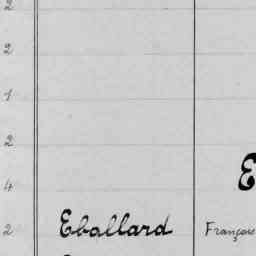 2
2
1
2
E
4
2 Eballard François